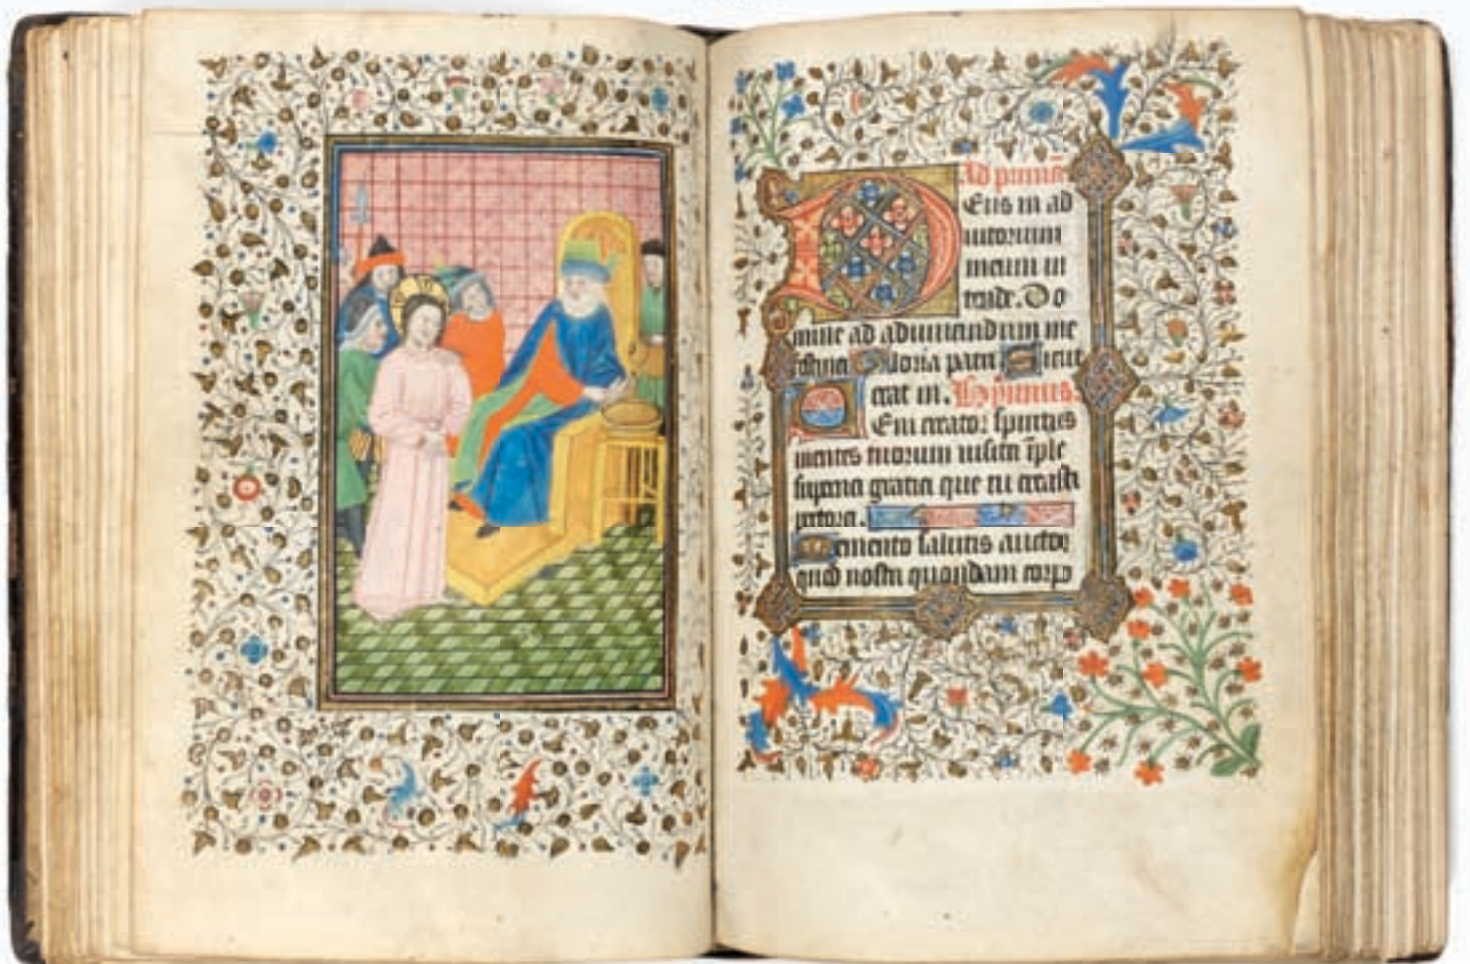 Ad primã
Eus in ad
iutorium
meum in
tende. Do
mine ad adiuuandum me
festina Gloria patri Sicut
erat in. Hymnus.
Eni creator spiritus
mentes tuorum uisita ĩple
superna gratia que tu creasti
pectora.
Memento salutis auctor
quod nostri quondam corpo